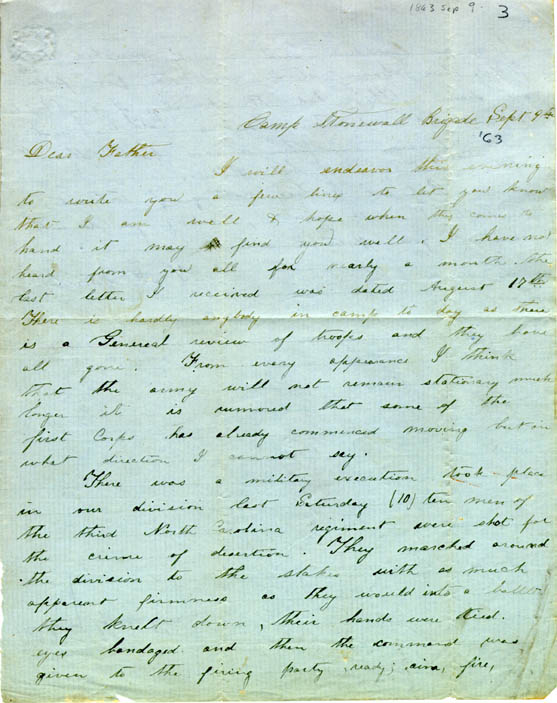 1863 Sep 9
3
Camp Stonewall Brigade Sept 9th
'63
Dear Father
I will endeavor this evening
to write you a few lines to let you know
that I am well & hope when this comes to
hand it may find you well. I have not
heard from you all for nearly a month the
last letter I received was dated August 17th
There is hardly anybody in camp to day as there
is a General review of troops and they have
all gone. From every appearance I think
that the army will not remain stationary much
longer it is rumored that some of the
first Corps has already commenced moving but in
what direction I cannot say.
There was a military execution took place
in our division last Saturday (10) ten men of
the third North Carolina regiment were shot for
the crime of desertion. They marched around
the division to the stakes with as much
apparent firmness as they would into a battle
they knelt down, their hands were tied.
eyes bandaged and then the command was
given to the firing party, ready; aim, fire,